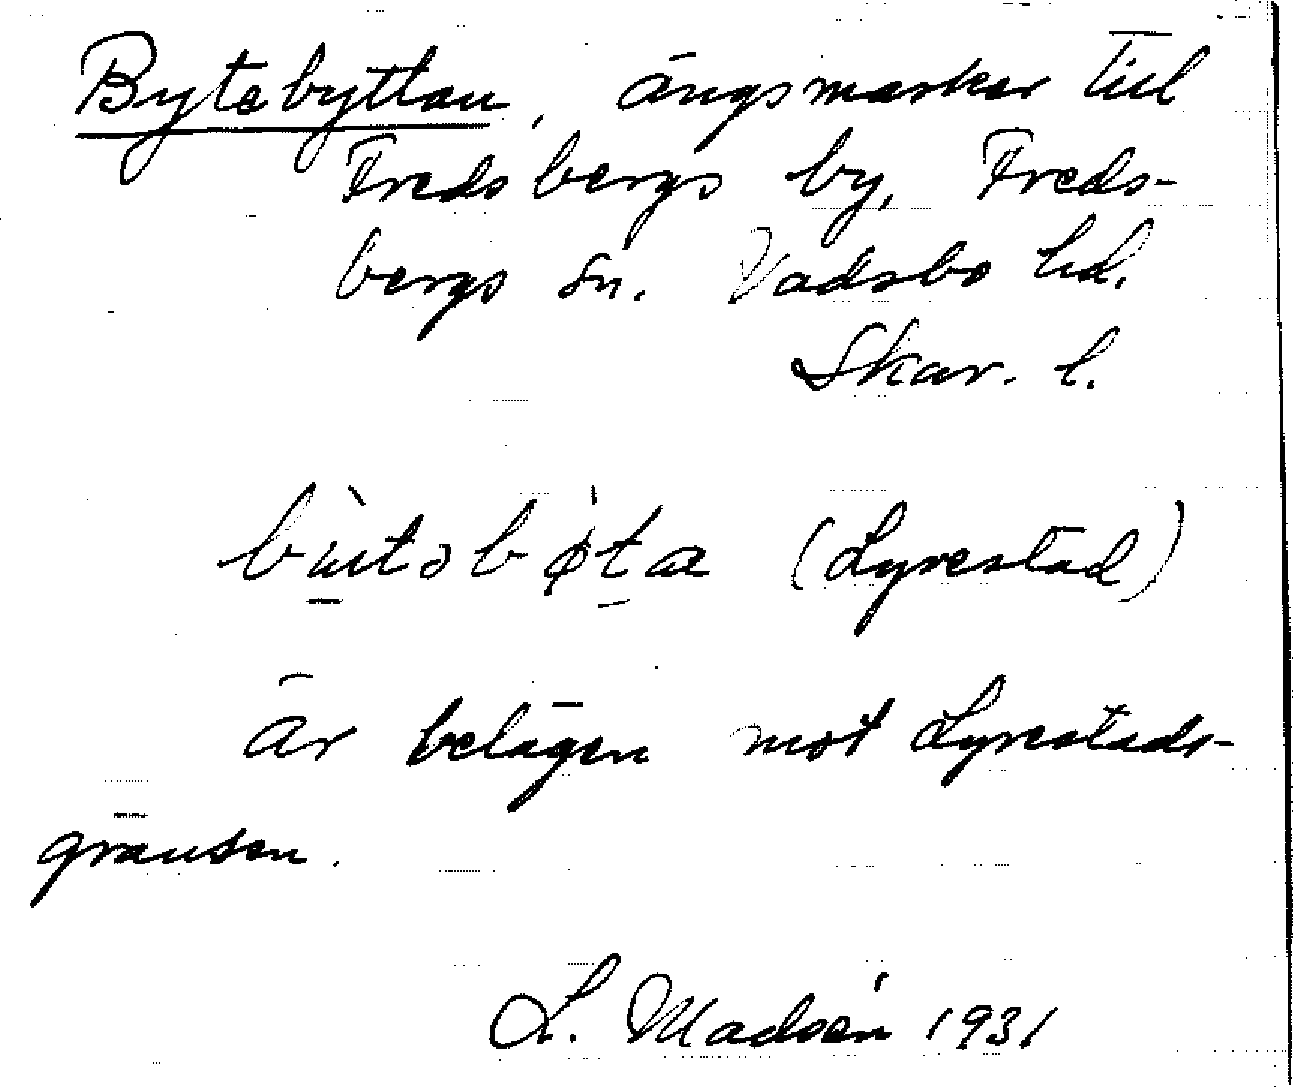 Bytebyttan, ängsmarker till
Fredsbergs by, Freds-
bergs sn. Vadsbo hd.
Skar. l.
(Lyrestad)
är belägen mot Lyrestads-
gränsen.
L. Madsén 1931